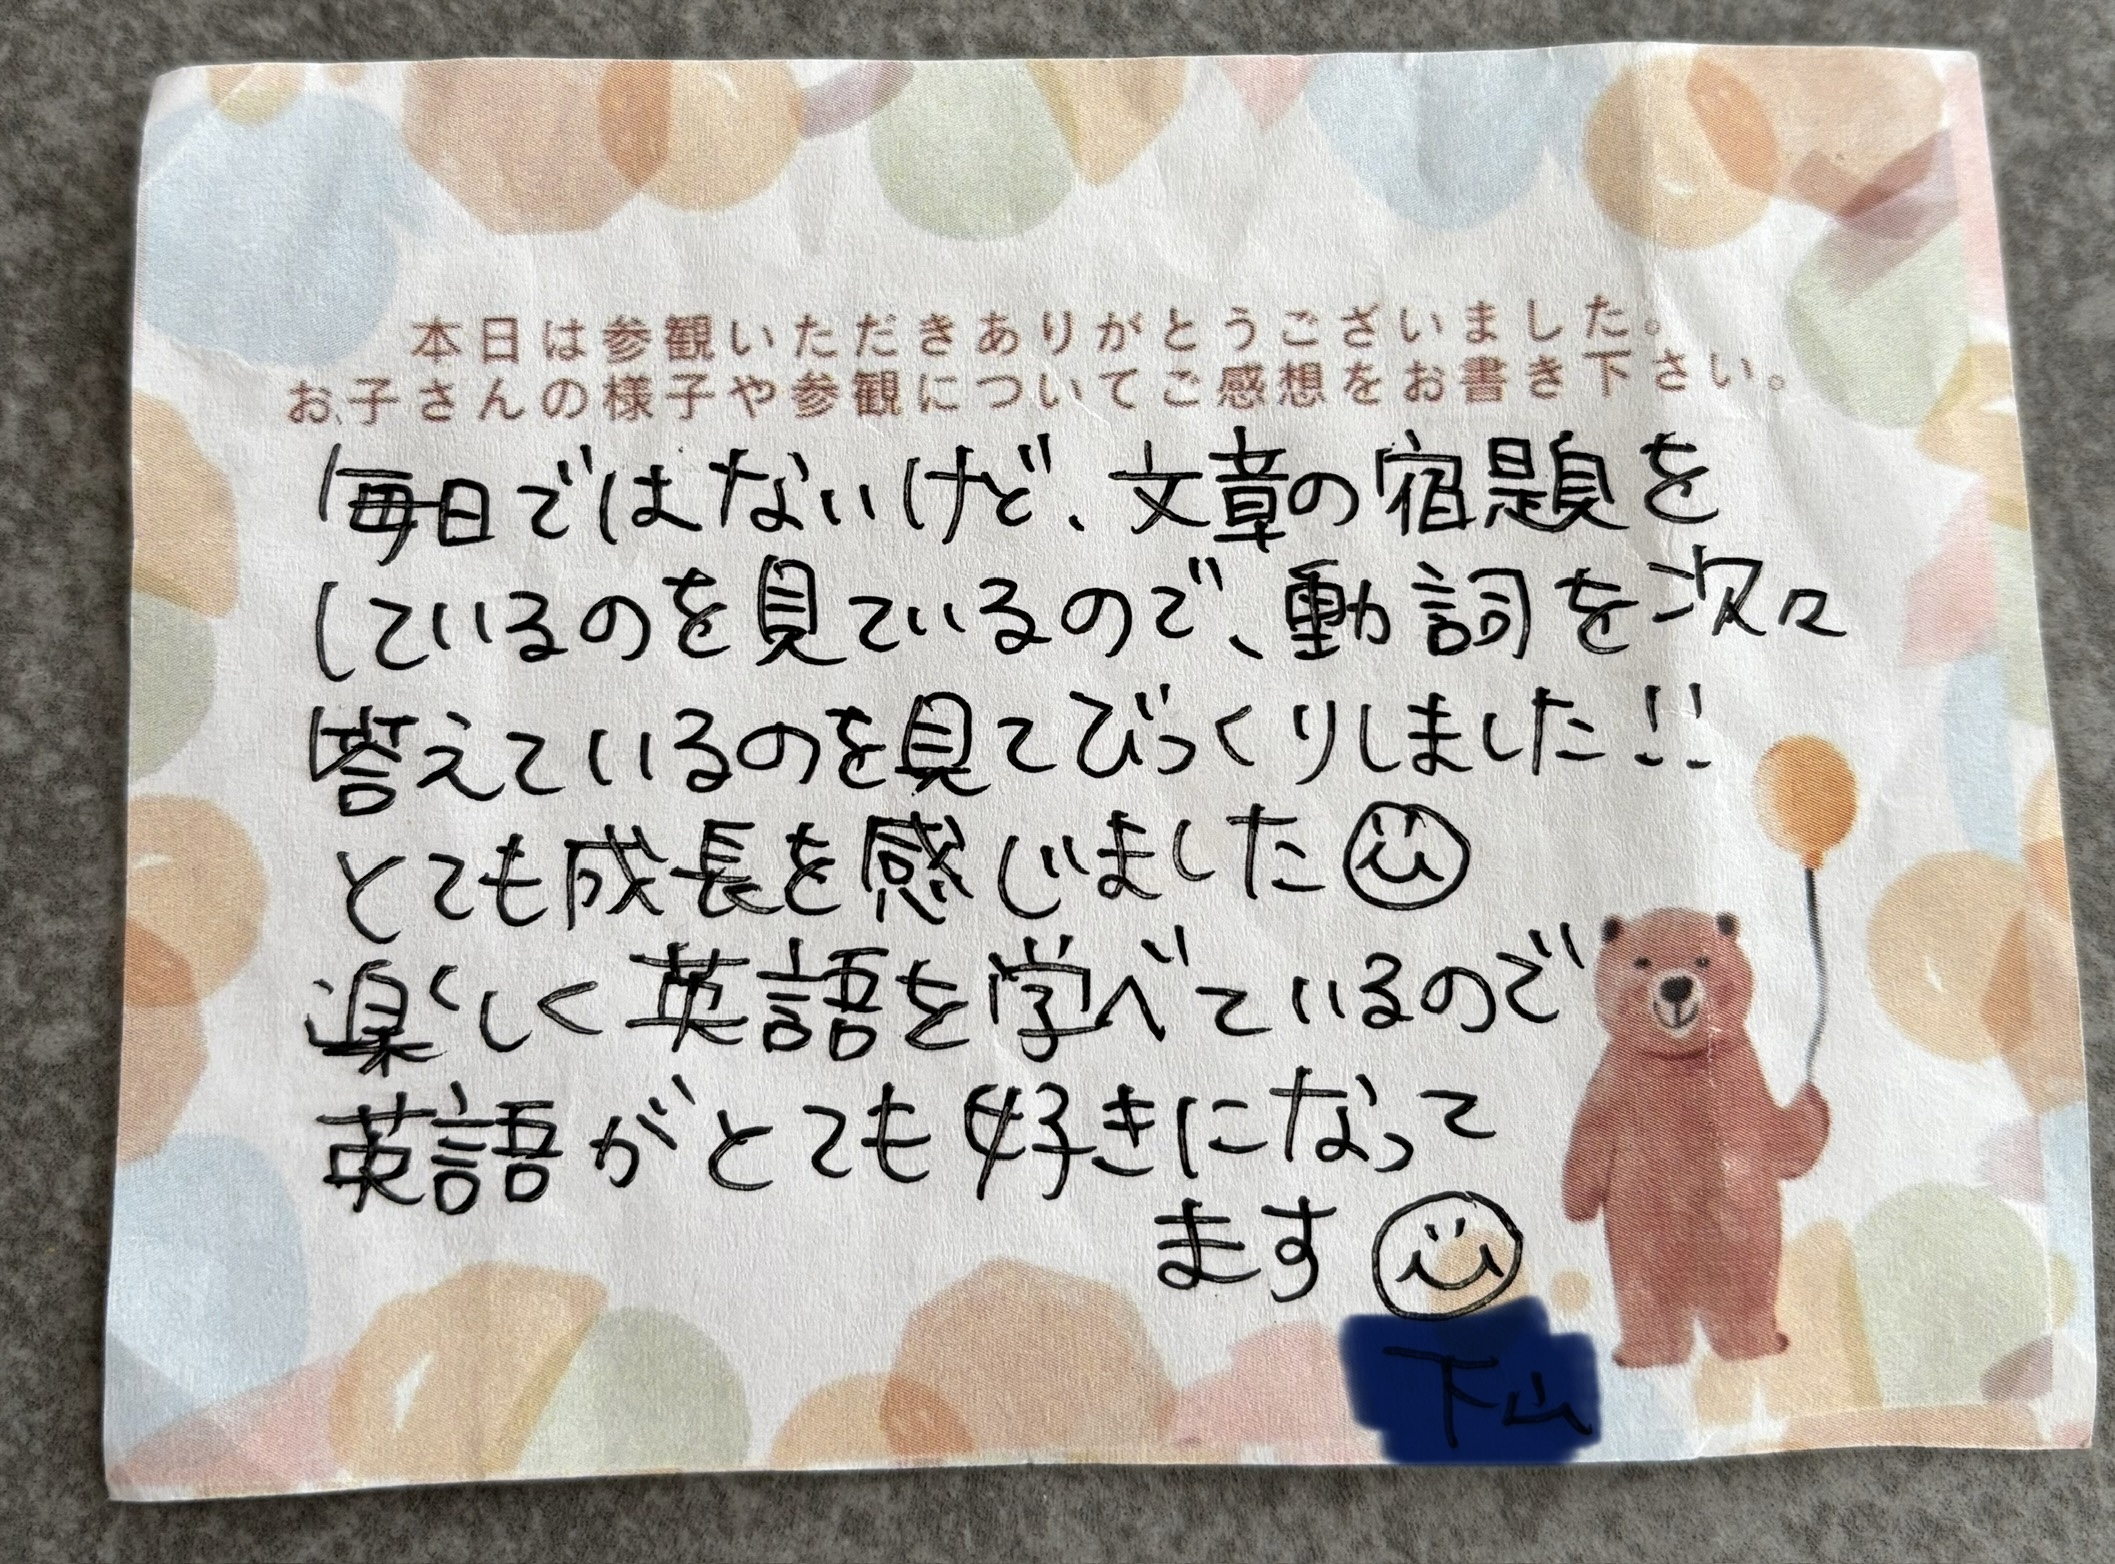 本日は参観いただきありがとうございました。
お子さんの様子や参観についてご感想をお書き下さい。
毎日ではないけど、文章の宿題を
しているのを見ているので、動詞を次々
答えているのを見てびっくりしました!!
とても成長を感じました
楽しく英語を学べているので
英語がとても好きになって
ます
下山